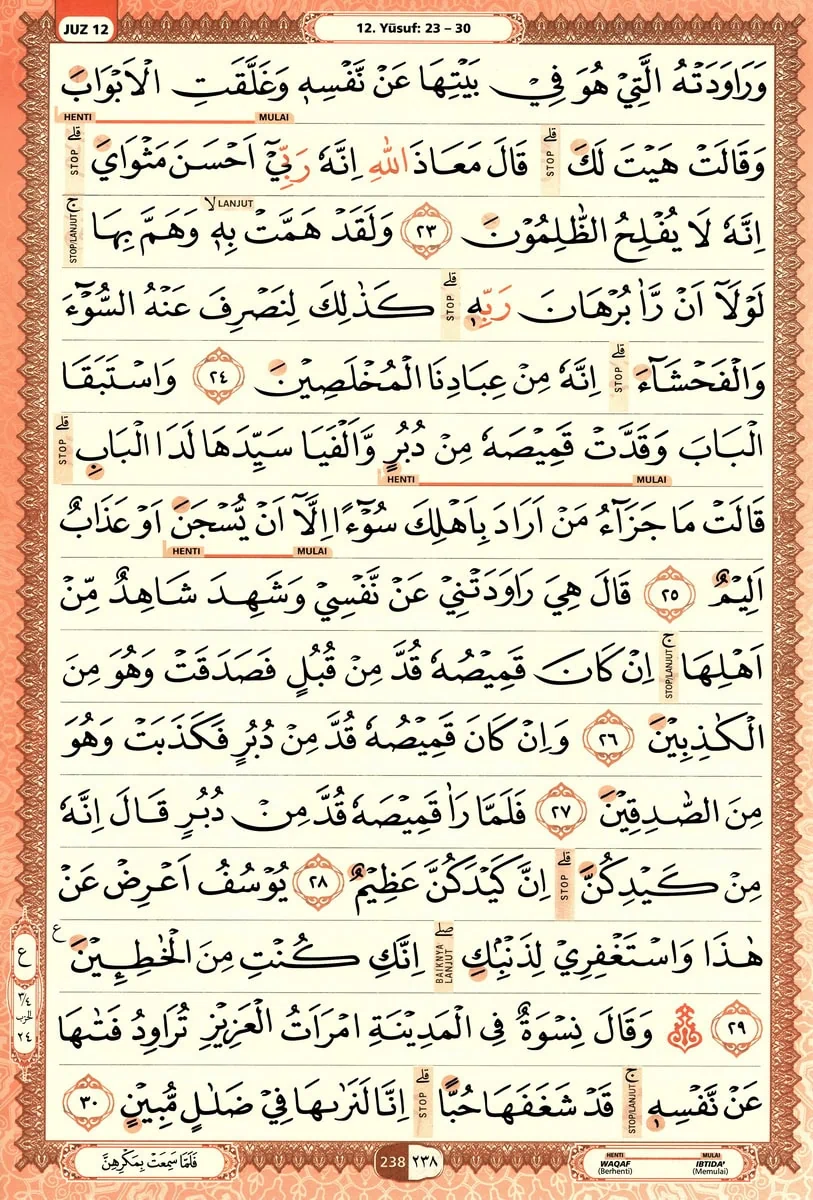 JUZ 12
12. Yūsuf: 23 – 30
وَرَاوَدَتْهُ الَّتِيْ هُوَ فِيْ بَيْتِهَا عَنْ نَّفْسِهٖ وَغَلَّقَتِ الْاَبْوَابَ
HENTI MULAI
وَقَالَتْ هَيْتَ لَكَ ۗ قَالَ مَعَاذَ اللّٰهِ اِنَّهٗ رَبِّيْٓ اَحْسَنَ مَثْوَايَ ۗ
STOP STOP
LANJUT
اِنَّهٗ لَا يُفْلِحُ الظّٰلِمُوْنَ ٢٣ وَلَقَدْ هَمَّتْ بِهٖ ۙ وَهَمَّ بِهَا ۚ
STOP/LANJUT
لَوْلَآ اَنْ رَّاٰ بُرْهَانَ رَبِّهٖ ۗ كَذٰلِكَ لِنَصْرِفَ عَنْهُ السُّوْۤءَ
STOP
وَالْفَحْشَاۤءَ ۗ اِنَّهٗ مِنْ عِبَادِنَا الْمُخْلَصِيْنَ ٢٤ وَاسْتَبَقَا
STOP
الْبَابَ وَقَدَّتْ قَمِيْصَهٗ مِنْ دُبُرٍ وَّاَلْفَيَا سَيِّدَهَا لَدَا الْبَابِ ۗ
STOP
HENTI MULAI
قَالَتْ مَا جَزَاۤءُ مَنْ اَرَادَ بِاَهْلِكَ سُوْۤءًا اِلَّآ اَنْ يُّسْجَنَ اَوْ عَذَابٌ
HENTI MULAI
اَلِيْمٌ ٢٥ قَالَ هِيَ رَاوَدَتْنِيْ عَنْ نَّفْسِيْ وَشَهِدَ شَاهِدٌ مِّنْ
اَهْلِهَا ۚ اِنْ كَانَ قَمِيْصُهٗ قُدَّ مِنْ قُبُلٍ فَصَدَقَتْ وَهُوَ مِنَ
STOP/LANJUT
الْكٰذِبِيْنَ ٢٦ وَاِنْ كَانَ قَمِيْصُهٗ قُدَّ مِنْ دُبُرٍ فَكَذَبَتْ وَهُوَ
مِنَ الصّٰدِقِيْنَ ٢٧ فَلَمَّا رَاٰ قَمِيْصَهٗ قُدَّ مِنْ دُبُرٍ قَالَ اِنَّهٗ
مِنْ كَيْدِكُنَّ ۗ اِنَّ كَيْدَكُنَّ عَظِيْمٌ ٢٨ يُوْسُفُ اَعْرِضْ عَنْ
STOP
هٰذَا وَاسْتَغْفِرِيْ لِذَنْۢبِكِ ۖ اِنَّكِ كُنْتِ مِنَ الْخٰطِـِٕيْنَ ع
BAIKNYA LANJUT
٢٩ وَقَالَ نِسْوَةٌ فِى الْمَدِيْنَةِ امْرَاَتُ الْعَزِيْزِ تُرَاوِدُ فَتٰىهَا
عَنْ نَّفْسِهٖ ۚ قَدْ شَغَفَهَا حُبًّا ۗ اِنَّا لَنَرٰىهَا فِيْ ضَلٰلٍ مُّبِيْنٍ ٣٠
STOP/LANJUT STOP
ع
٣/٤
الحزب
٢٤
فَلَمَّا سَمِعَتْ بِمَكْرِهِنَّ
238 ٢٣٨
HENTI MULAI
WAQAF IBTIDA'
(Berhenti) (Memulai)